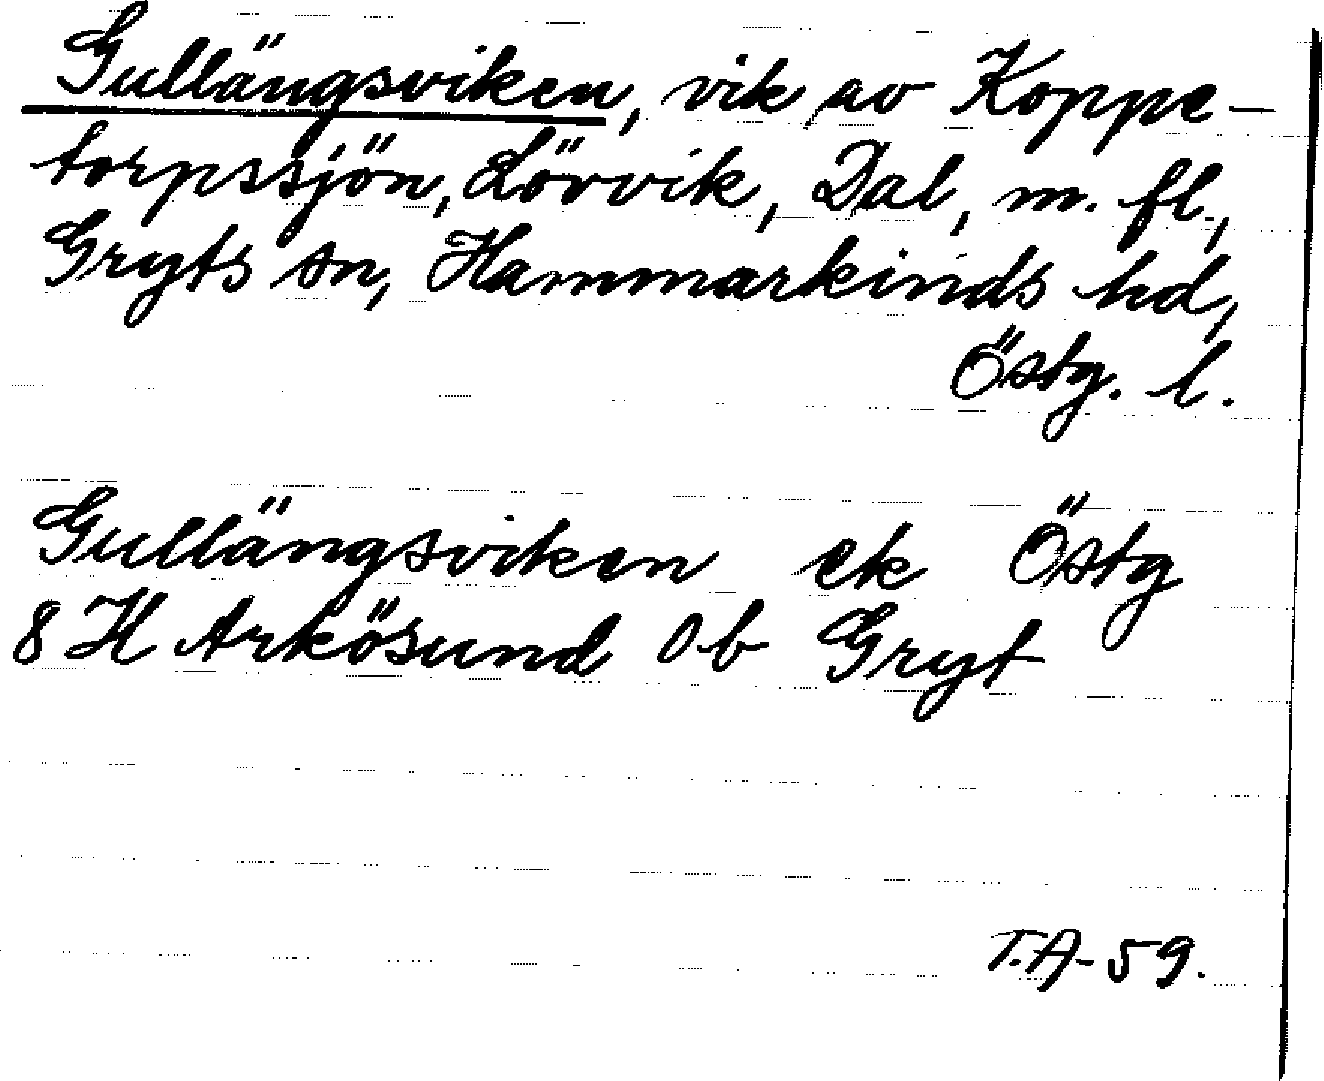 Gullängsviken, vik av Koppe-
torpssjön, Lörvik, Dal, m. fl.,
Gryts sn, Hammarkinds hd,
Östg. l.
Gullängsviken ek Östg
8 H Arkösund 0b Gryt
T.A-59.